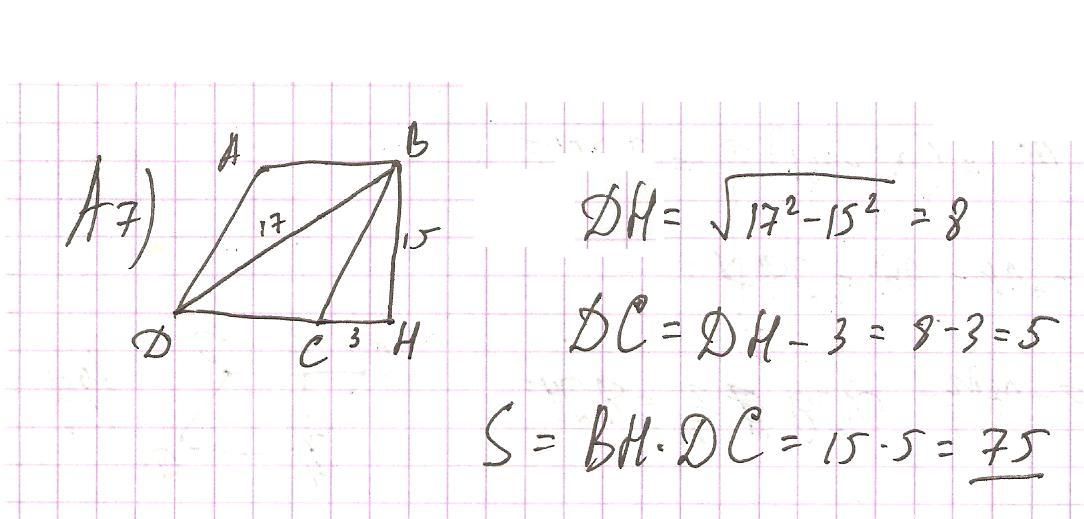 A7)
A B
17
15
D C 3 H
DH = √17²-15² = 8
DC = DH - 3 = 8-3=5
S = BH·DC = 15·5 = 75